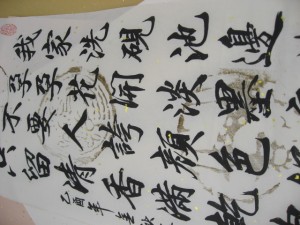 我家洗硯池邊
朶朶花開淡墨
不要人誇顏色
只留清香滿乾
乙酉年